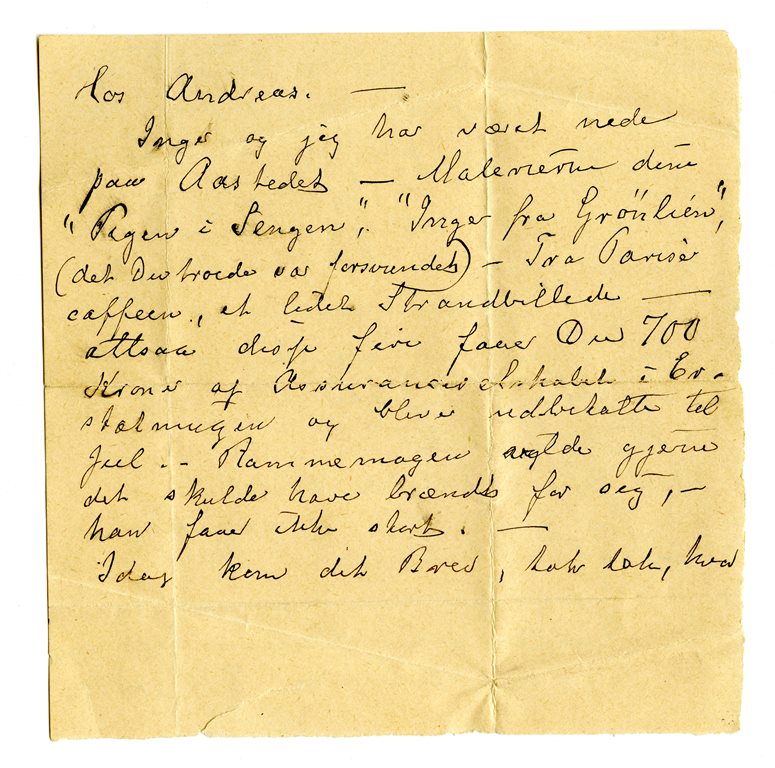 Hos Andreas. —
Inger og jeg har været nede
paa Aastedet — Malerierne dine
"Pigen i Sengen", "Inger fra Grönlien",
(det Du troede var forsvundet) – Fra Pariser
caffeen, et lidet Strandbillede —
altsaa disse fire faaer Du 700
Kroner af Assuranceselskabet i Er-
statningen og blive udbetalte til
Juel. – Rammemagen vilde gjerne
det skulde have brændt for seg, –
han faaer ikke stort. —
Idag kom dit Brev, tak tak, hvor